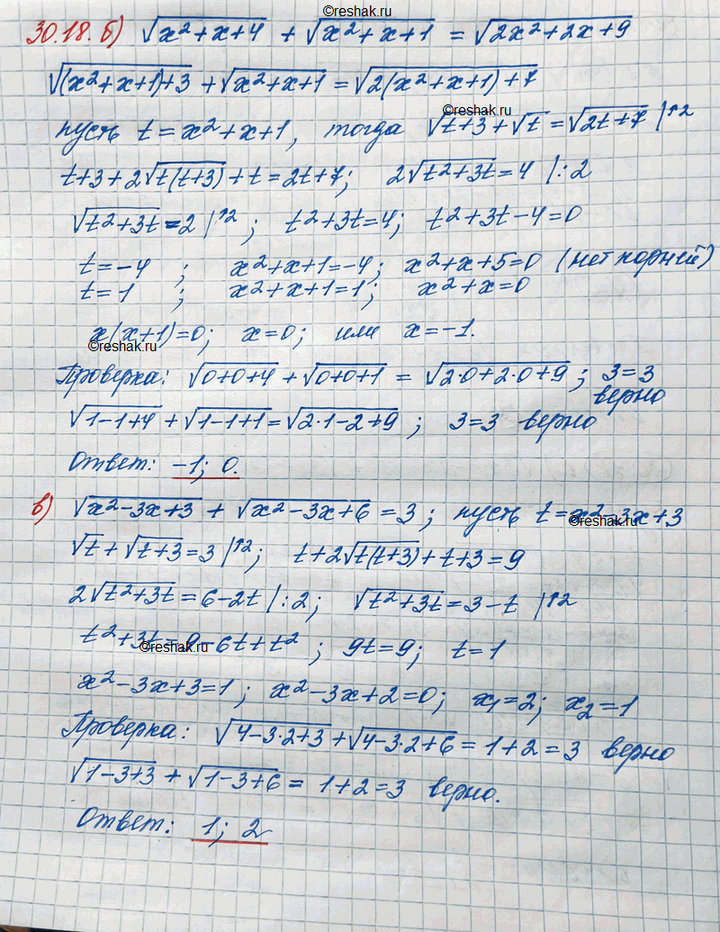 ©reshak.ru
30.18. б) √(x²+x+4) + √(x²+x+1) = √(2x²+2x+9)
√((x²+x+1)+3) + √(x²+x+1) = √(2(x²+x+1)+7)
©reshak.ru
пусть t = x²+x+1, тогда √(t+3) + √t = √(2t+7) |↑2
t+3+2√(t(t+3)) + t = 2t+7; 2√(t²+3t) = 4 |:2
√(t²+3t) = 2 |↑2; t²+3t=4; t²+3t-4=0
t=-4; x²+x+1=-4; x²+x+5=0 (нет корней)
t=1; x²+x+1=1; x²+x=0
x(x+1)=0; x=0; или x=-1.
©reshak.ru
Проверка: √(0+0+4) + √(0+0+1) = √(2·0+2·0+9); 3=3
верно
√(1-1+4) + √(1-1+1) = √(2·1-2+9); 3=3 верно
Ответ: -1; 0.
в) √(x²-3x+3) + √(x²-3x+6) = 3; пусть t=x²-3x+3
©reshak.ru
√t + √(t+3) = 3 |↑2; t+2√(t(t+3)) + t+3=9
2√(t²+3t) = 6-2t |:2; √(t²+3t) = 3-t |↑2
t²+3t=9-6t+t²; 9t=9; t=1
©reshak.ru
x²-3x+3=1; x²-3x+2=0; x₁=2; x₂=1
Проверка: √(4-3·2+3) + √(4-3·2+6) = 1+2=3 верно
√(1-3+3) + √(1-3+6) = 1+2=3 верно.
Ответ: 1; 2
©reshak.ru